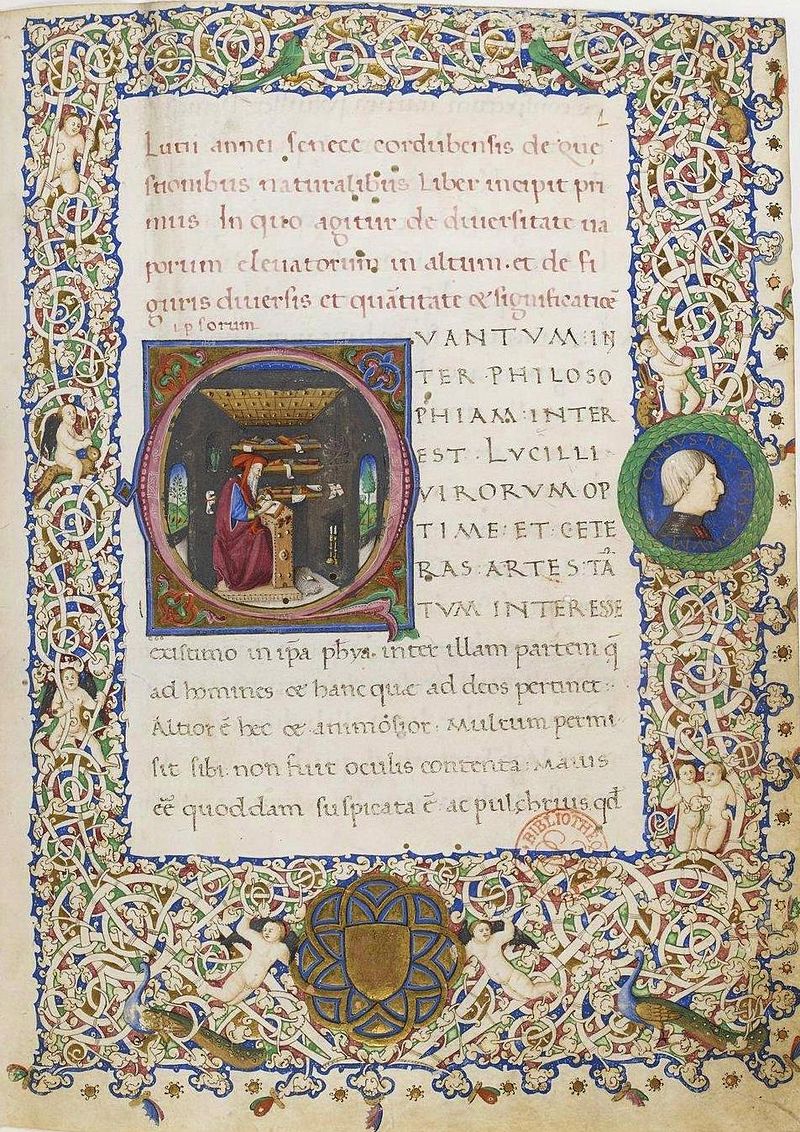 1
Lutii annei senece cordubensis de que
stionibus naturalibus liber incipit pri
mus In quo agitur de diversitate va
porum elevatorum in altum. et de fi
guris diversis et quātitate & significatiōe
ipsorum
VANTVM: IN
TER PHILOSO
PHIAM: INTER
EST LVCILLI
VIRORVM OP
TIME: ET CETE
RAS ARTES: TĀ
TVM INTERESSE
existimo in ip̄a phỹa. inter illam partem q̄
ad homines & hanc quae ad deos pertinet:
Altior ē hec & animosior: Multum permi
sit sibi: non fuit oculis contenta: Maius
eē̄ quoddam suspicata ē ac pulchrius qd
BIBLIOTHE
REX